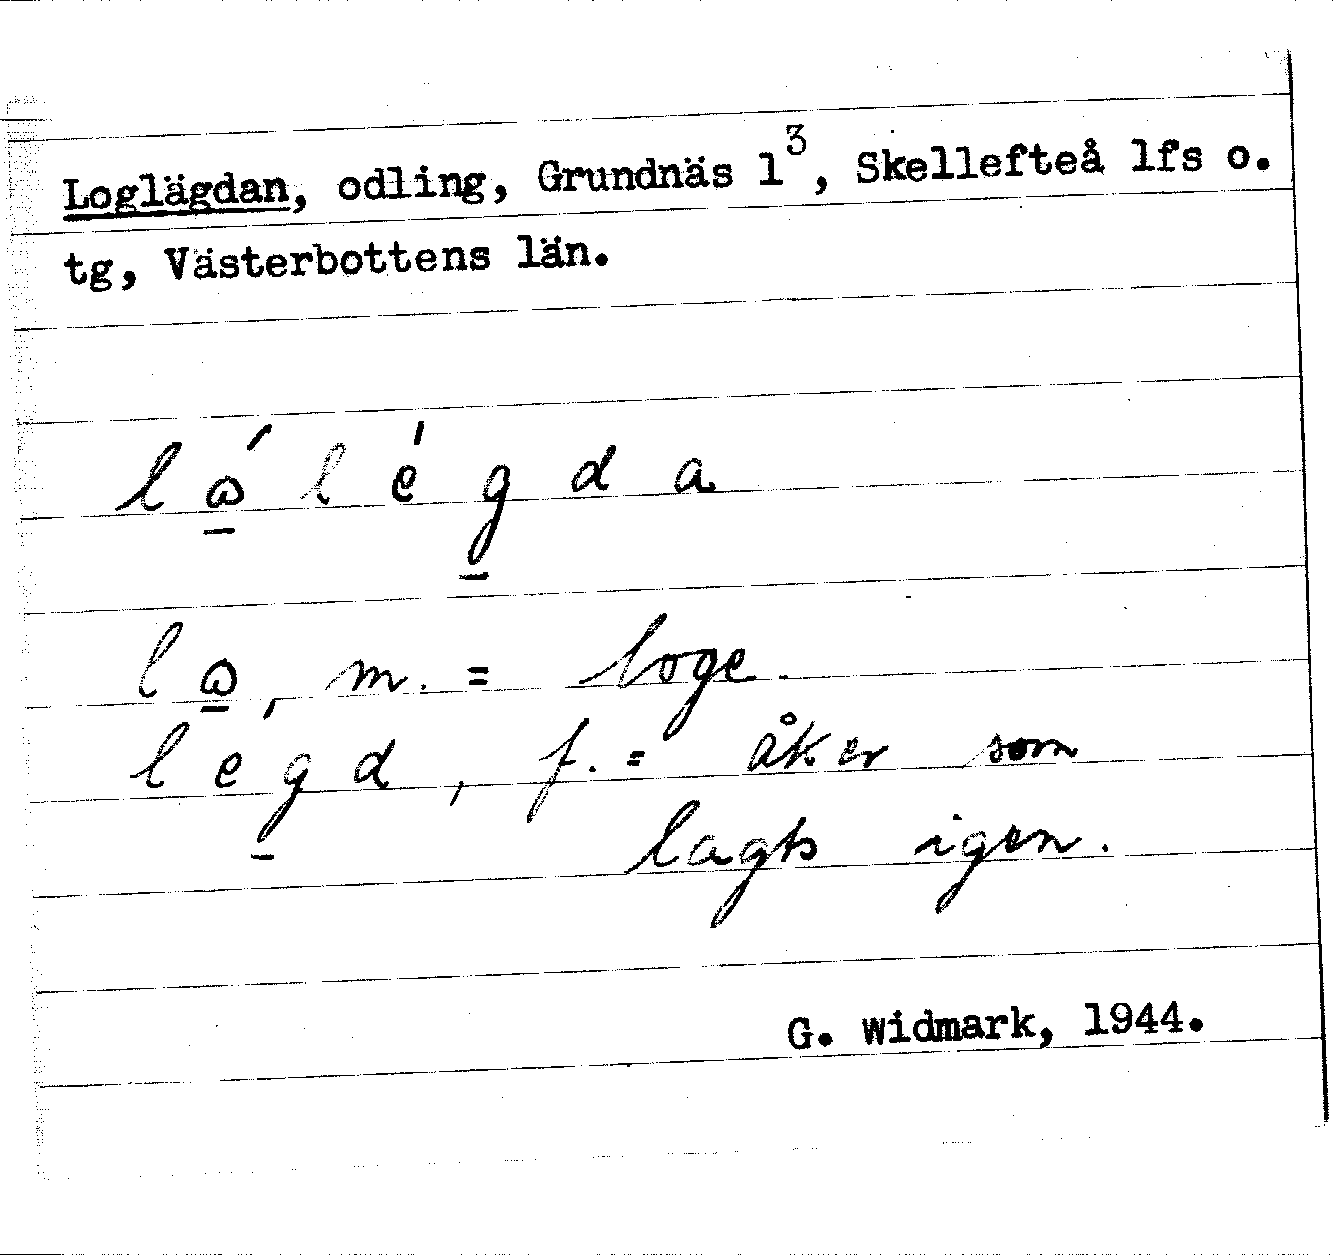 Loglägdan, odling, Grundnäs 1³, Skellefteå lfs o.
tg, Västerbottens län.
l ώ̱ l é g̱ d a
l ω̱, m. = loge.
l é g̱ d, f. = åker som
lagts igen.
G. Widmark, 1944.